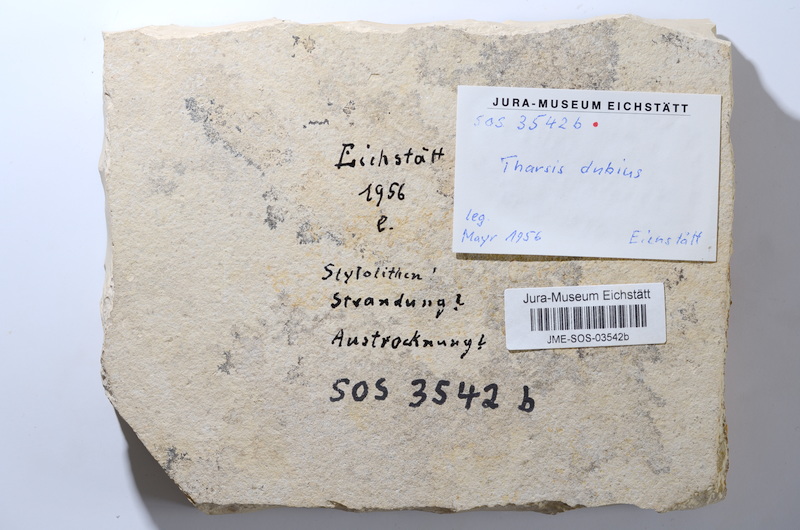 Eichstätt
1956
e.
Stylolithen!
Strandung!
Austrocknung!
SOS 3542 b
JURA-MUSEUM EICHSTÄTT
SOS 3542b
Tharsis dubius
leg.
Mayr 1956
Eichstätt
Jura-Museum Eichstätt
JME-SOS-03542b